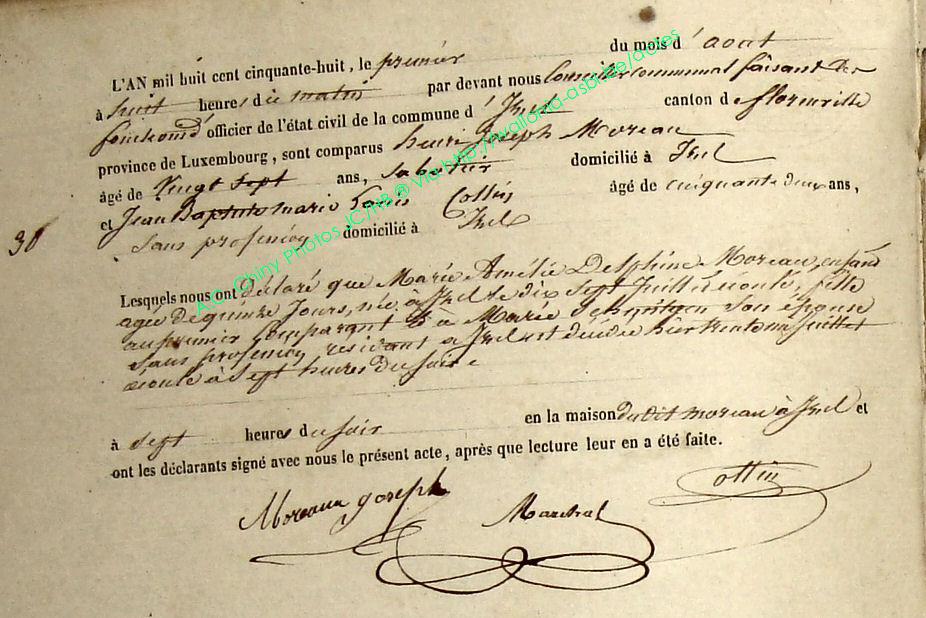 L'AN mil huit cent cinquante-huit, le premier du mois d'aout
à huit heures du matin par devant nous Conseiller Communal faisant les
fonctions d'officier de l'état civil de la commune d'Izel canton de florenville
province de Luxembourg, sont comparus henri Joseph Moreau
âgé de Vingt sept ans, sabotier domicilié à Izel
et Jean Baptiste marie Louis Collin âgé de cinquante deux ans,
38
Sans profession domicilié à Izel
Lesquels nous ont déclaré que Marie Amélie Delphine Moreau, enfant
agée de quinze Jours, née à Izel le dix sept Juillet écoulé, fille
au premier Comparant & à Marie son épouse
Sans profession résidant a Izel est décédée hier trente un Juillet
écoulé à Sept heures du Soir.
à Sept heures du soir en la maison du dit moreau à Izel et
ont les déclarants signé avec nous le présent acte, après que lecture leur en a été faite.
Moreau Joseph Marchal Collin
A.C. Chiny Photos JC/HB @ via http://wallonia-asbl.be/actes